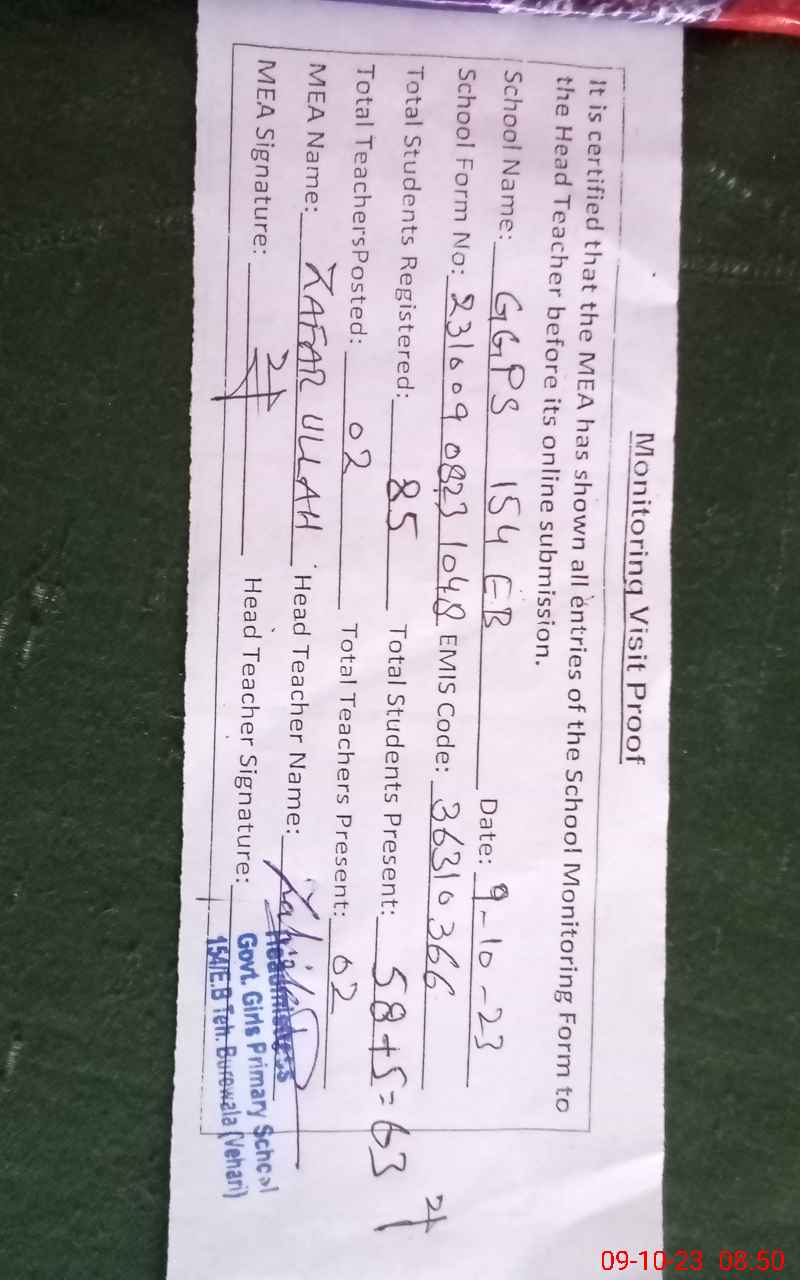 Monitoring Visit Proof
It is certified that the MEA has shown all entries of the School Monitoring Form to
the Head Teacher before its online submission.
School Name: GGPS 154 EB Date: 9-10-23
School Form No: 231009 0823 1048 EMIS Code: 36310366
Total Students Registered: 85 Total Students Present: 58+5=63
Total TeachersPosted: 02 Total Teachers Present: 02
MEA Name: ZAFAR ULLAH Head Teacher Name:
MEA Signature: Head Teacher Signature:
Headmistress
Govt. Girls Primary School
154/E.B Teh. Burewala (Vehari)
09-10-23 08:50